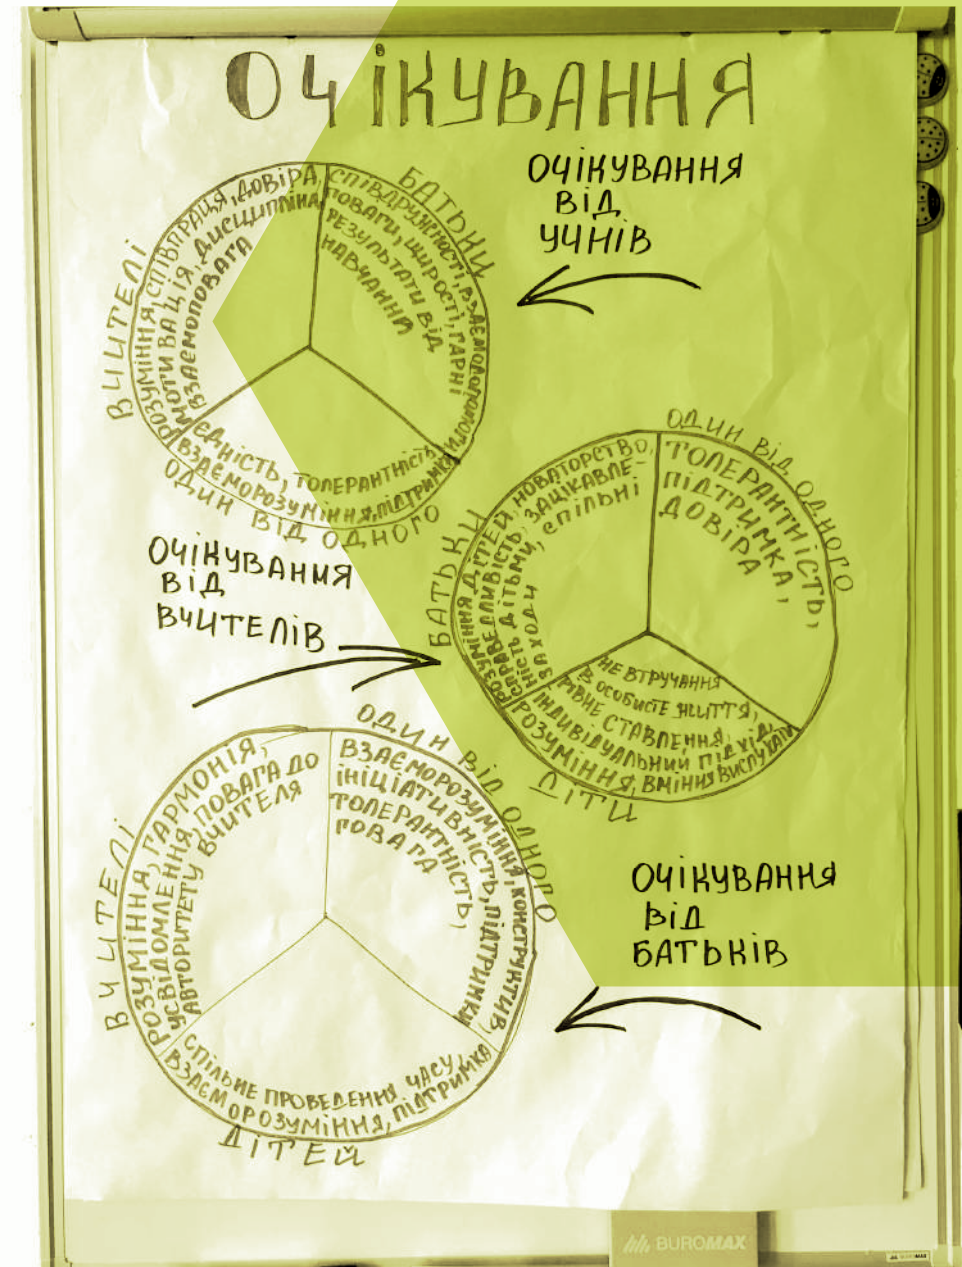 ОЧІКУВАННЯ
ОЧІКУВАННЯ
ВІД
УЧНІВ
ВЧИТЕЛІ
РОЗУМІННЯ, СПІВПРАЦЯ, ДОВІРА,
МОТИВАЦІЯ, ДИСЦИПЛІНА,
ВЗАЄМОПОВАГА
БАТЬКИ
СПІВДРУЖНОСТІ, ВЗАЄМОДОПОМОГИ,
ПОВАГИ, ЩИРОСТІ, ГАРНІ
РЕЗУЛЬТАТИ ВІД
НАВЧАННЯ
ЄДНІСТЬ, ТОЛЕРАНТНІСТЬ,
ВЗАЄМОРОЗУМІННЯ, ПІДТРИМКА
ОДИН ВІД ОДНОГО
ОЧІКУВАННЯ
ВІД
ВЧИТЕЛІВ
БАТЬКИ
РОЗУМІННЯ ДІТЕЙ, НОВАТОРСТВО,
СПРАВЕДЛИВІСТЬ, ЗАЦІКАВЛЕ-
НІСТЬ ДІТЬМИ, СПІЛЬНІ
ЗАХОДИ
ОДИН ВІД ОДНОГО
ТОЛЕРАНТНІСТЬ,
ПІДТРИМКА,
ДОВІРА
НЕ ВТРУЧАННЯ
В ОСОБИСТЕ ЖИТТЯ,
РІВНЕ СТАВЛЕННЯ,
ІНДИВІДУАЛЬНИЙ ПІДХІД,
РОЗУМІННЯ, ВМІННЯ ВИСЛУХАТИ
ДІТИ
ОЧІКУВАННЯ
ВІД
БАТЬКІВ
ВЧИТЕЛІ
РОЗУМІННЯ, ГАРМОНІЯ,
УСВІДОМЛЕННЯ, ПОВАГА ДО
АВТОРИТЕТУ ВЧИТЕЛЯ
ОДИН ВІД ОДНОГО
ВЗАЄМОРОЗУМІННЯ, КОНСТРУКТИВ,
ІНІЦІАТИВНІСТЬ, ПІДТРИМКИ
ТОЛЕРАНТНІСТЬ,
ПОВАГА
СПІЛЬНЕ ПРОВЕДЕННЯ ЧАСУ,
ВЗАЄМОРОЗУМІННЯ, ПІДТРИМКА
ДІТЕЙ
BUROMAX
BUROMAX